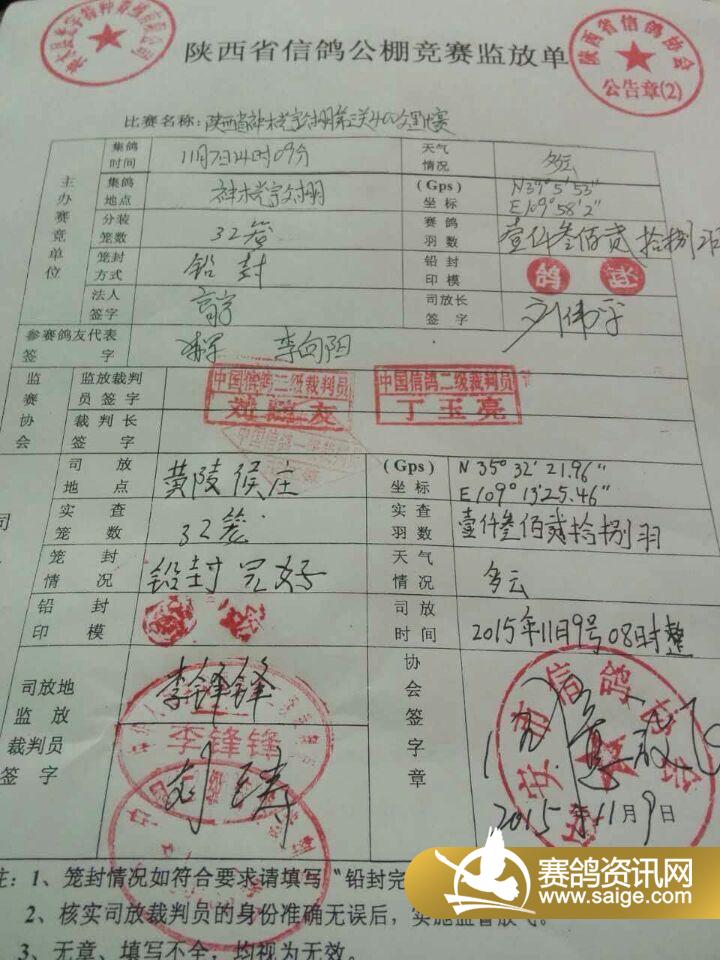 陕西省信鸽公棚竞赛监放单
陕西省信鸽协会
公告章(2)
比赛名称：陕西省神木
集鸽时间 11月7日14时09分 天气情况 多云
主办赛竞单位
集鸽地点 神木 (Gps)坐标 N39°5'53" E109°58'2"
分装笼数 32笼 赛鸽羽数 壹仟叁佰贰拾捌羽
笼封方式 铅封 铅封印模 鸽
法人签字 司放长签字 刘伟平
参赛鸽友代表签字 李向阳
监赛协会
监放裁判员签字 中国信鸽二级裁判员 中国信鸽二级裁判员
丁玉亮
裁判长签字
司放地点 黄陵侯庄 (Gps)坐标 N 35°32'21.96" E109°13'25.46"
实查笼数 32笼 实查羽数 壹仟叁佰贰拾捌羽
笼封情况 铅封完好 天气情况 多云
铅封印模 司放时间 2015年11月9号08时整
司放地监放裁判员签字 李锋锋 协会签字章
李锋锋
2015年11月9日
注：1、笼封情况如符合要求请填写“铅封完
2、核实司放裁判员的身份准确无误后，实施监督放飞。
3、无章、填写不全，均视为无效。
赛鸽资讯网
www.saige.com